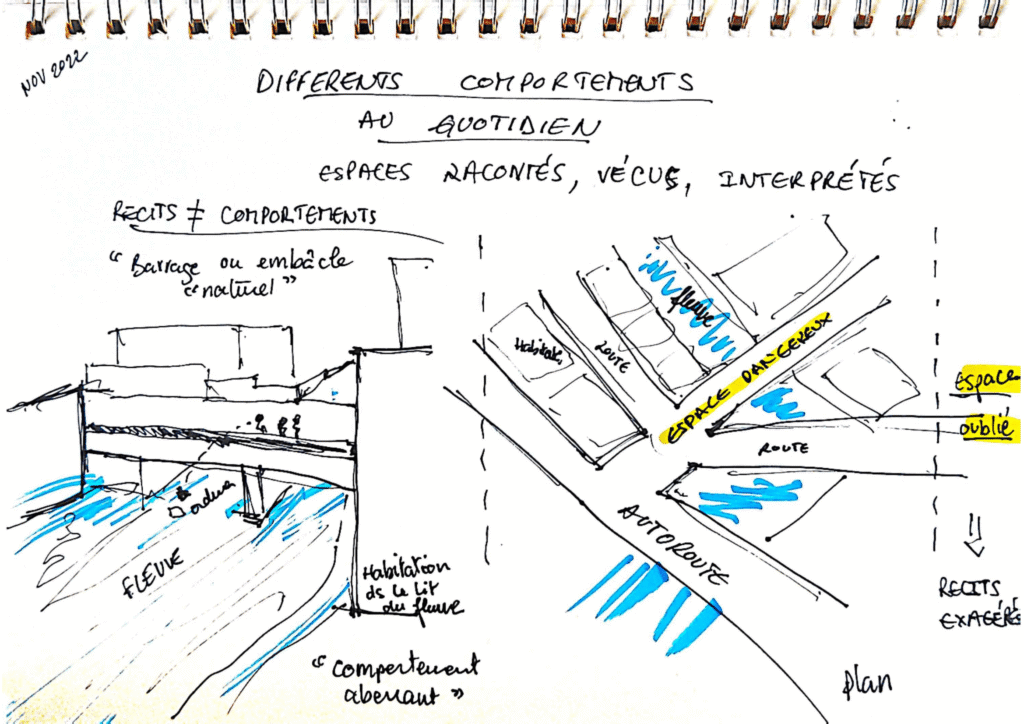 NOV 2022
DIFFERENTS COMPORTEMENTS
AU QUOTIDIEN
ESPACES RACONTÉS, VÉCUS, INTERPRÉTÉS
RECITS ≠ COMPORTEMENTS
"Barrage ou embâcle
"naturel"
FLEUVE
Habitation
ds le lit
du fleuve
"Comportement
aberrant"
fleuve
ROUTE
ESPACE DANGEREUX
ROUTE
AUTOROUTE
plan
espace
oublié
⇓
RECITS
EXAGÉRÉS